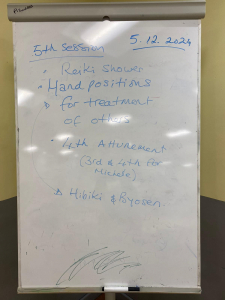 5th Session 5.12.2024
Reiki Shower
Hand positions
for treatment
of others
4th Attunement
(3rd & 4th for
Michele)
Hibiki & Byosen